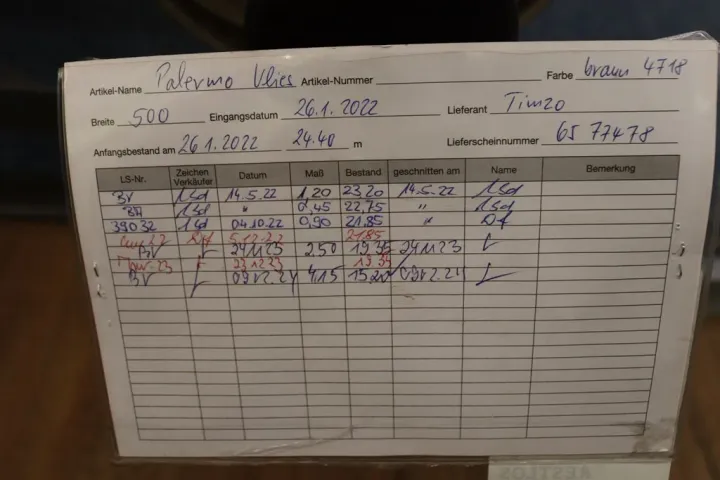 Artikel-Name Palermo Vlies Artikel-Nummer Farbe braun 4718
Breite 500 Eingangsdatum 26.1.2022 Lieferant Timzo
Anfangsbestand am 26.1.2022 24.40 m Lieferscheinnummer 65 77478
LS-Nr. Zeichen Verkäufer Datum Maß Bestand geschnitten am Name Bemerkung
BV 14.5.22 1,20 23,20 14.5.22
" 0,45 22,75 "
39032 04.10.22 0,90 21,85 "
5.12.22 21.85
BV 24.11.23 2.50 19,35 24.11.23
19.35
BV 09.12.24 4.15 15.20 09.12.24